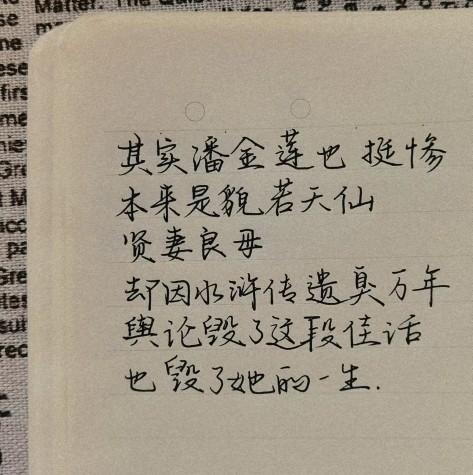 Matter. The
其实潘金莲也挺惨
本来是貌若天仙
贤妻良母
却因水浒传遗臭万年
舆论毁了这段佳话
也毁了她的一生.